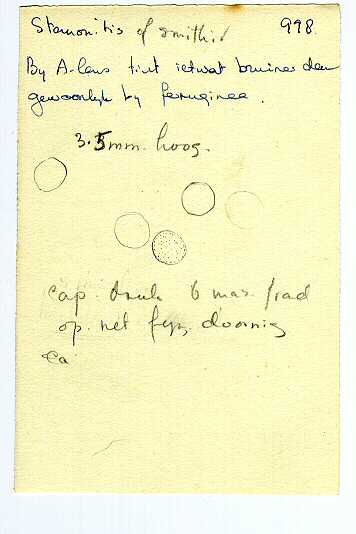 Stemonitis cf smithii 998
By A-lens tint ietwat bruiner dan
gewoonlyk by ferruginea.
3.5mm. hoog.
cap. 6 max. / rad
op. net fyn doornig
Ca